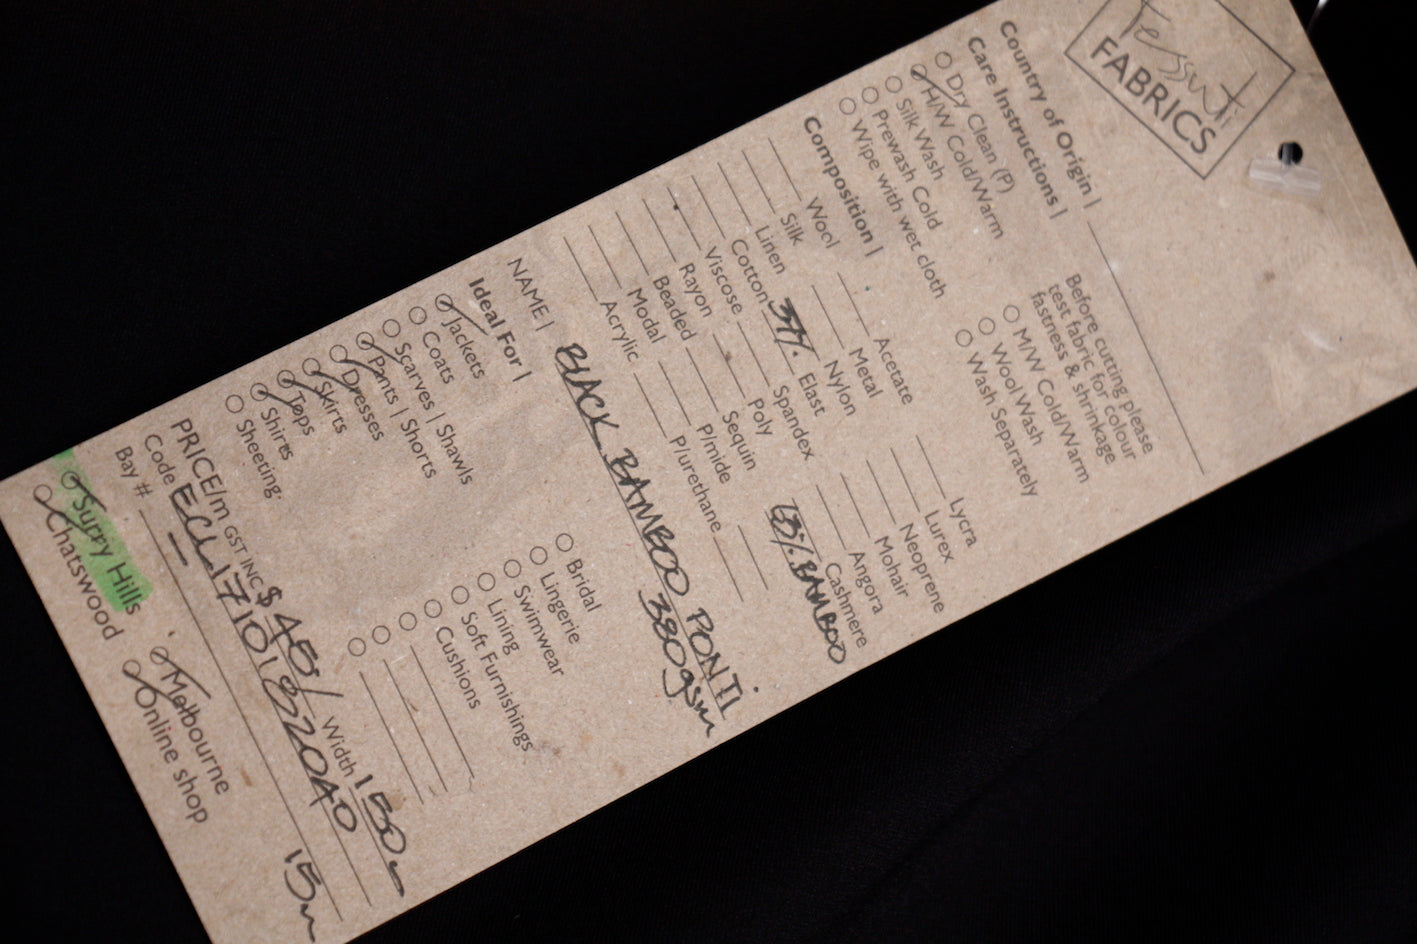 Tessuti
FABRICS
Country of Origin |
Care Instructions |
Dry Clean (P)
H/W Cold/Warm
Silk Wash
Prewash Cold
Wipe with wet cloth
Before cutting please
test fabric for colour
fastness & shrinkage
M/W Cold/Warm
Wool Wash
Wash Separately
Composition |
Wool
Silk
Linen
Cotton
Viscose
Rayon
Beaded
Modal
Acrylic
Acetate
Metal
Nylon
Elast
Spandex
Poly
Sequin
P/mide
P/urethane
Lycra
Lurex
Neoprene
Mohair
Angora
Cashmere
BAMBOO
NAME | BLACK BAMBOO PONTI
380gsm
Ideal For |
Jackets
Coats
Scarves | Shawls
Pants | Shorts
Dresses
Skirts
Tops
Shires
Sheeting
Bridal
Lingerie
Swimwear
Lining
Soft Furnishings
Cushions
PRICE/m GST INC $45/ Width 150
Code
Bay #
15m
Surry Hills
Chatswood
Melbourne
Online shop